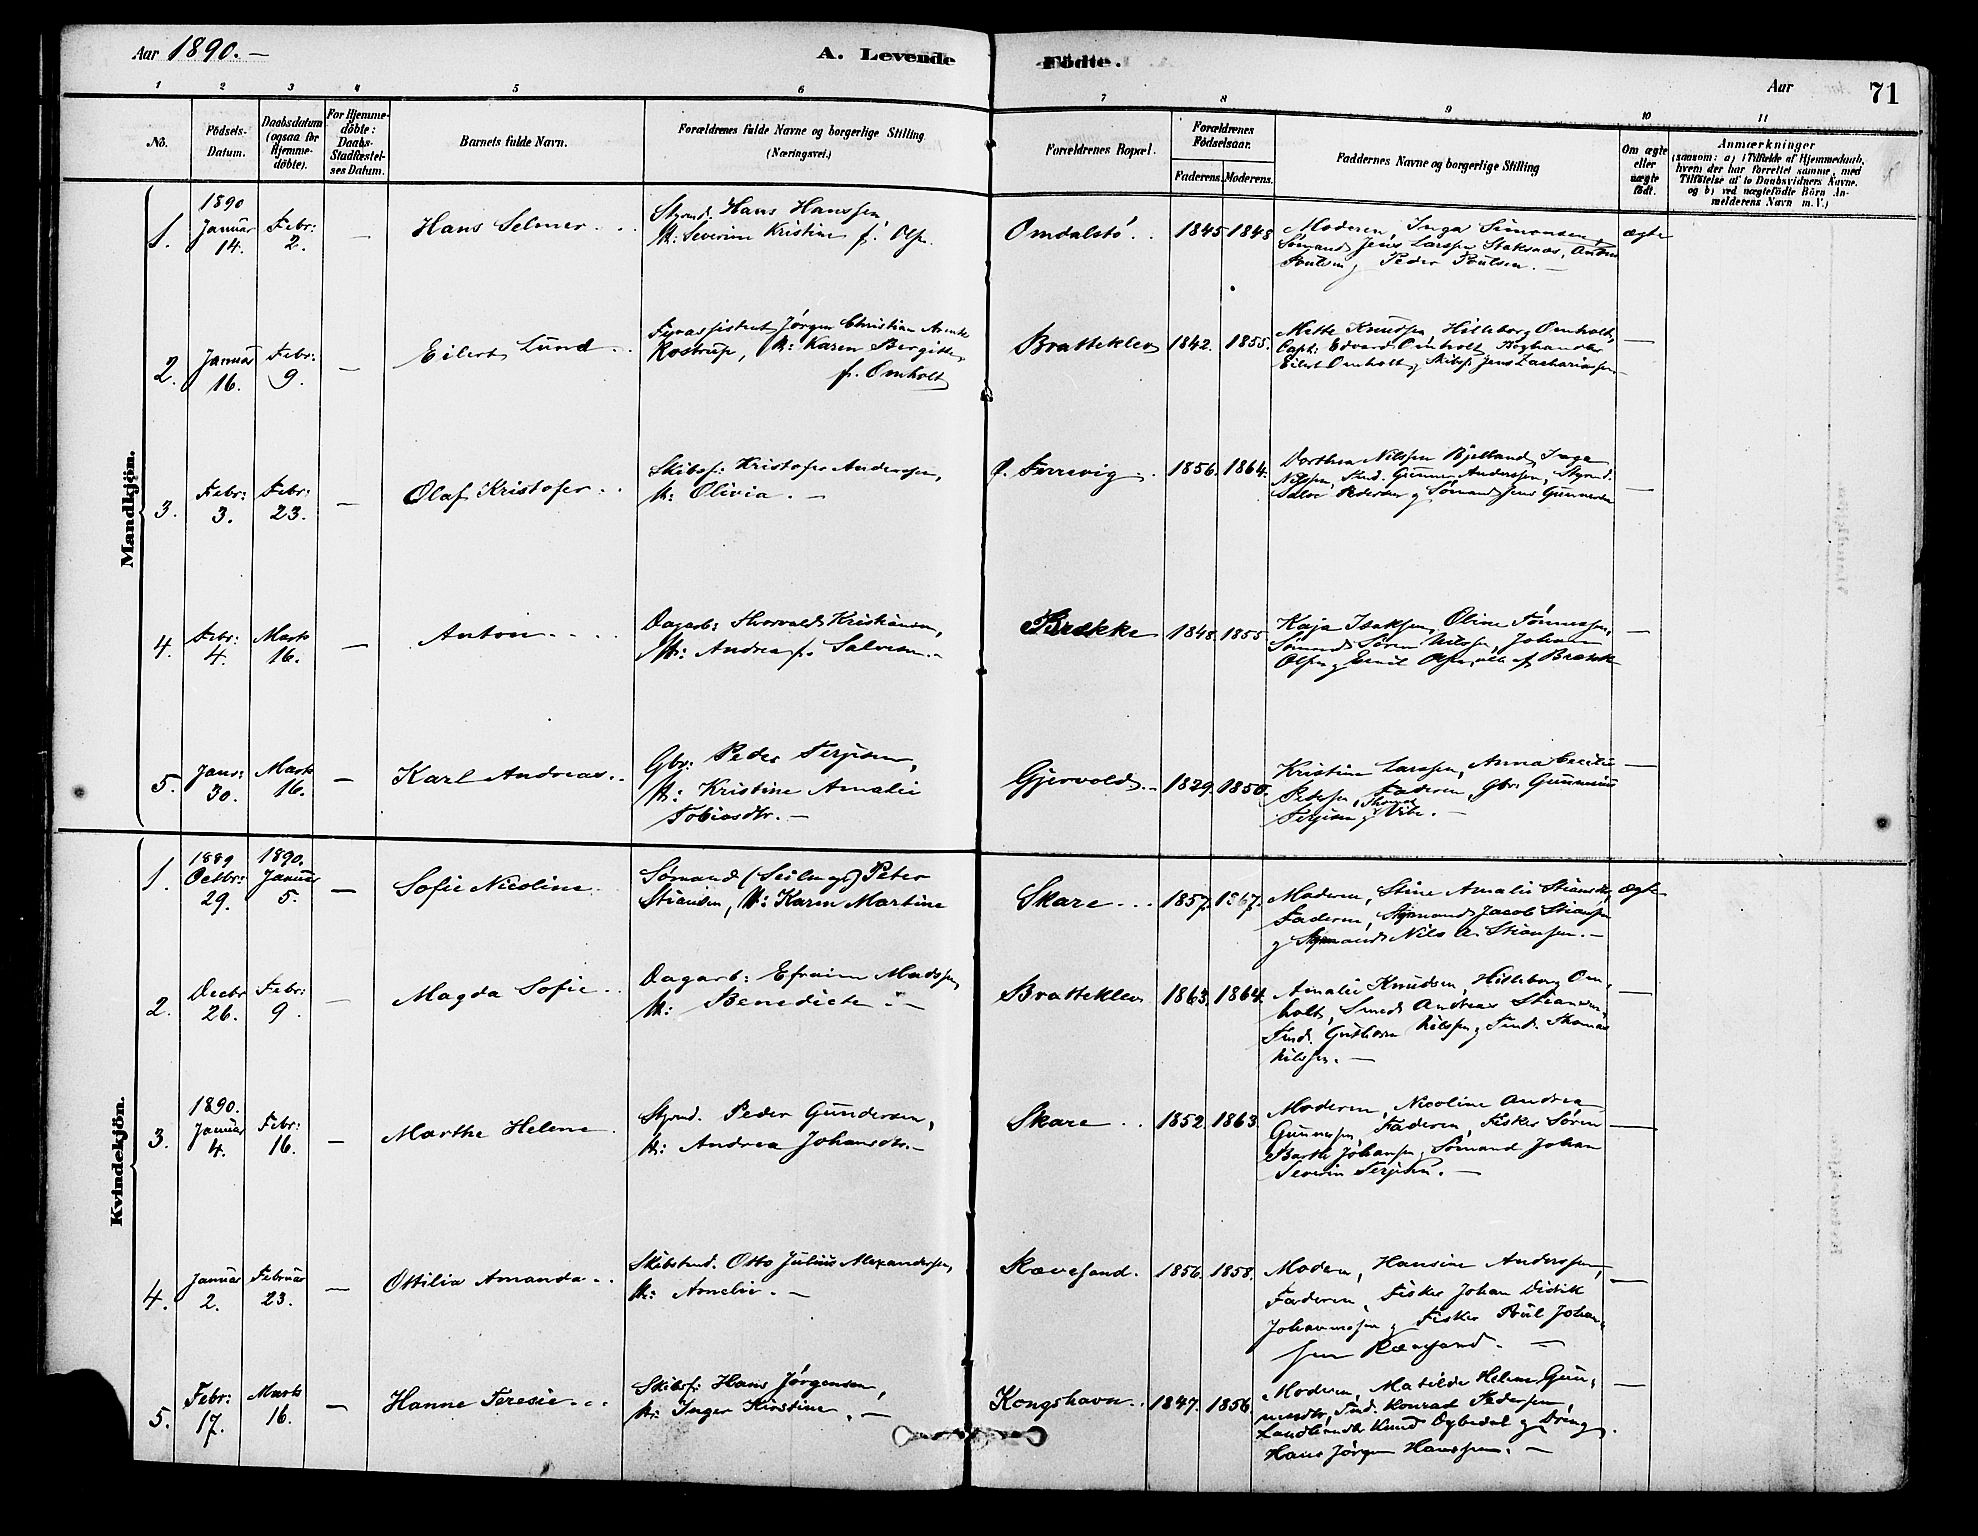 Aar 1890. —
A. Levende
Födte.
Aar
71
1 2 3 4 5 6 7 8 9 10 11
No.
Födsels-
Datum.
Daabsdatum
(ogsaa for
Hjemme-
döbte).
For Hjemme-
döbte:
Daabs-
Stadfæstel-
ses Datum.
Barnets fulde Navn.
Forældrenes fulde Navne og borgerlige Stilling
(Næringsvei.)
Forældrenes Bopæl.
Forældrenes
Födselsaar.
Faderens. Moderens.
Faddernes Navne og borgerlige Stilling
Om ægte
eller
uægte
födt.
Anmærkninger
(saasom: a) i Tilfælde af Hjemmedaab,
hvem der har forrettet samme, med
Tilföielse af to Daabsvidners Navne.
og b) ved uægtefödte Börn An-
melderens Navn m. V.)
Mandkjön.
1.
1890
Januar
14.
Febr:
2.
—
Hans Selmer
Styrmd. Hans Hanssen,
H: Severine Kristine f. Olsn.
Omdalstö
1845 1848
Moderen, Inga Simonsen,
Sömand Jens Larssen Staksnæs, Anton
Poulsen og Peder Poulsen. —
ægte
2.
Januar
16.
Febr:
9.
—
Eilert Lund
Fyrassistent Jörgen Christian Arenke
Rostrup, H: Karen Bergitte
f. Omholt
Bratteklev
1842. 1855.
Mette Knudsen, Hilleborg Omholt,
Capt. Edvard Omholt, Boghandler
Eilert Omholt og Skibsf. Jens Zachariassen
—
3.
Febr:
3.
Febr:
23.
—
Olaf Kristofer
Skibsf: Kristofer Anderssen,
H: Olivia. —
Færevig
1856. 1864.
Dorthea Nilssen Bjelland, Inga
Nilssen, Gunner Anderssen, Styrmd.
Salve Pedersen og Sömand Jens Gunnersen
—
4.
Febr:
4.
Marts
16.
—
Anton
Dagarb: Thorvald Kristiansen,
H: Andrea f. Salvesen. —
Brække
1848. 1855
Kaja Isaksen, Oline Tönnessen,
Sömand Sören Nilssen, Johan
Olsen og Emil Olsen, alle af Brække
—
5.
Janr:
30.
Marts
16.
—
Karl Andreas
Gbr: Peder Terjesen,
H: Kristine Amalie
Tobiasdtr. —
Gjervold
1829. 1850.
Kristine Larssen, Anna Cecilie
Pedersen, Faderen, Gbr: Gunnerius
Terjesen og Thomas Vibe. —
—
Kvindekjön.
1.
1889
Octbr:
29.
1890.
Januar
5.
—
Sofie Nicoline
Sömand (Seilmgr) Peter
Stiansen, H: Karen Martine
Skare
1857. 1867.
Moderen, Stine Amalie Stiansen,
Faderen, Styrmand Jacob Stiansen
og Styrmand Nils A. Stiansen. —
Ægte
2.
Decbr
26.
Febr:
9.
—
Magda Sofie
Dagarb: Efraim Madssen,
H: Benedicte —
Bratteklev
1863. 1864.
Amalie Knudsen, Hilleborg Om-
holt, Smed Andreas Stiansen,
Guthorm Nilssen og Thomas
Nilssen. —
—
3.
1890.
Januar
4.
Febr:
16.
—
Marthe Helene
Styrmd. Peder Gundersen,
H: Andrea Johansdtr. —
Skare
1852. 1863.
Moderen, Nicoline Andrea
Gunnersen, Faderen, Fisker Sören
Barth Johansen, Sömand Johan
Severin Terjesen. —
—
4.
Januar
2.
Februar
23.
—
Ottilia Amanda
Skibstmd. Otto Julius Alexandersen,
H: Amelie. —
Rævesand.
1856. 1858.
Modern, Hansine Anderssen,
Faderen, Fisker Johan Didrik
Johannessen og Fisker Poul Johan-
sen Rævesand. —
—
5.
Febr:
17.
Marts
16.
—
Hanne Teresie
Skibsf: Hans Jörgensen,
H: Inger Kirstine. —
Kongshavn
1847. 1856.
Moderen, Matilde Helene Gun-
nersdtr, Konrad Pedersen,
Landhandler Knud Dybedal og Dreng
Hans Jörgen Hanssen. —
—